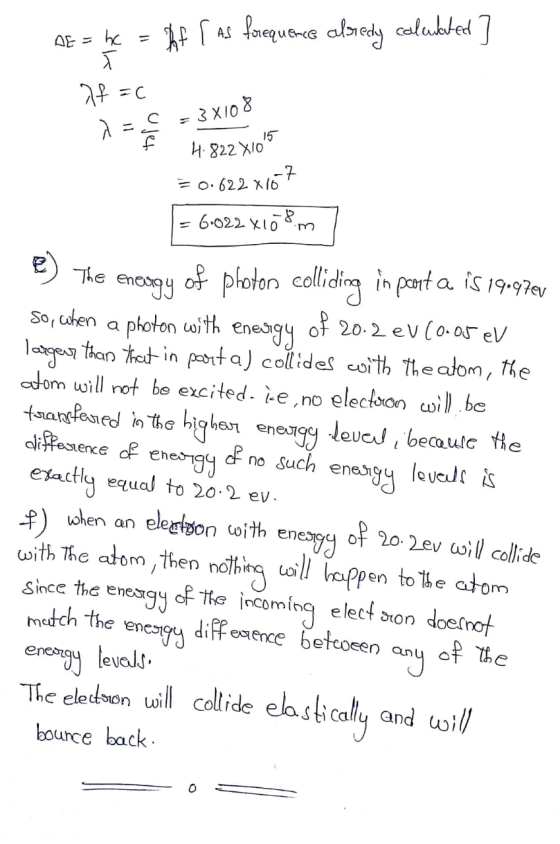 ΔE = hc/λ = hf [ As forequence alredy calculated ]
λf = c
λ = c/f = 3×10^8 / 4.822×10^15
= 0.622 × 10^-7
= 6.022 × 10^-8 m
e) The energy of photon colliding in part a is 19.97ev
so, when a photon with energy of 20.2 eV (0.05 eV
larger than that in part a) collides with the atom, the
atom will not be excited. i.e, no electron will be
transfered in the higher energy level, because the
difference of energy of no such energy levels is
exactly equal to 20.2 ev.
f) when an electron with energy of 20.2ev will collide
with the atom, then nothing will happen to the atom
since the energy of the incoming electron doesnot
match the energy difference between any of the
energy levels.
The electron will collide elastically and will
bounce back.
0